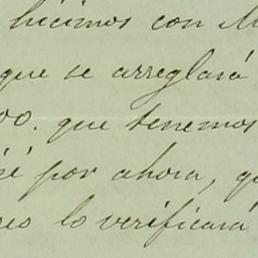 hicimos con M
que se arreglará
00. que tenemos
é por ahora, q
lo verificará